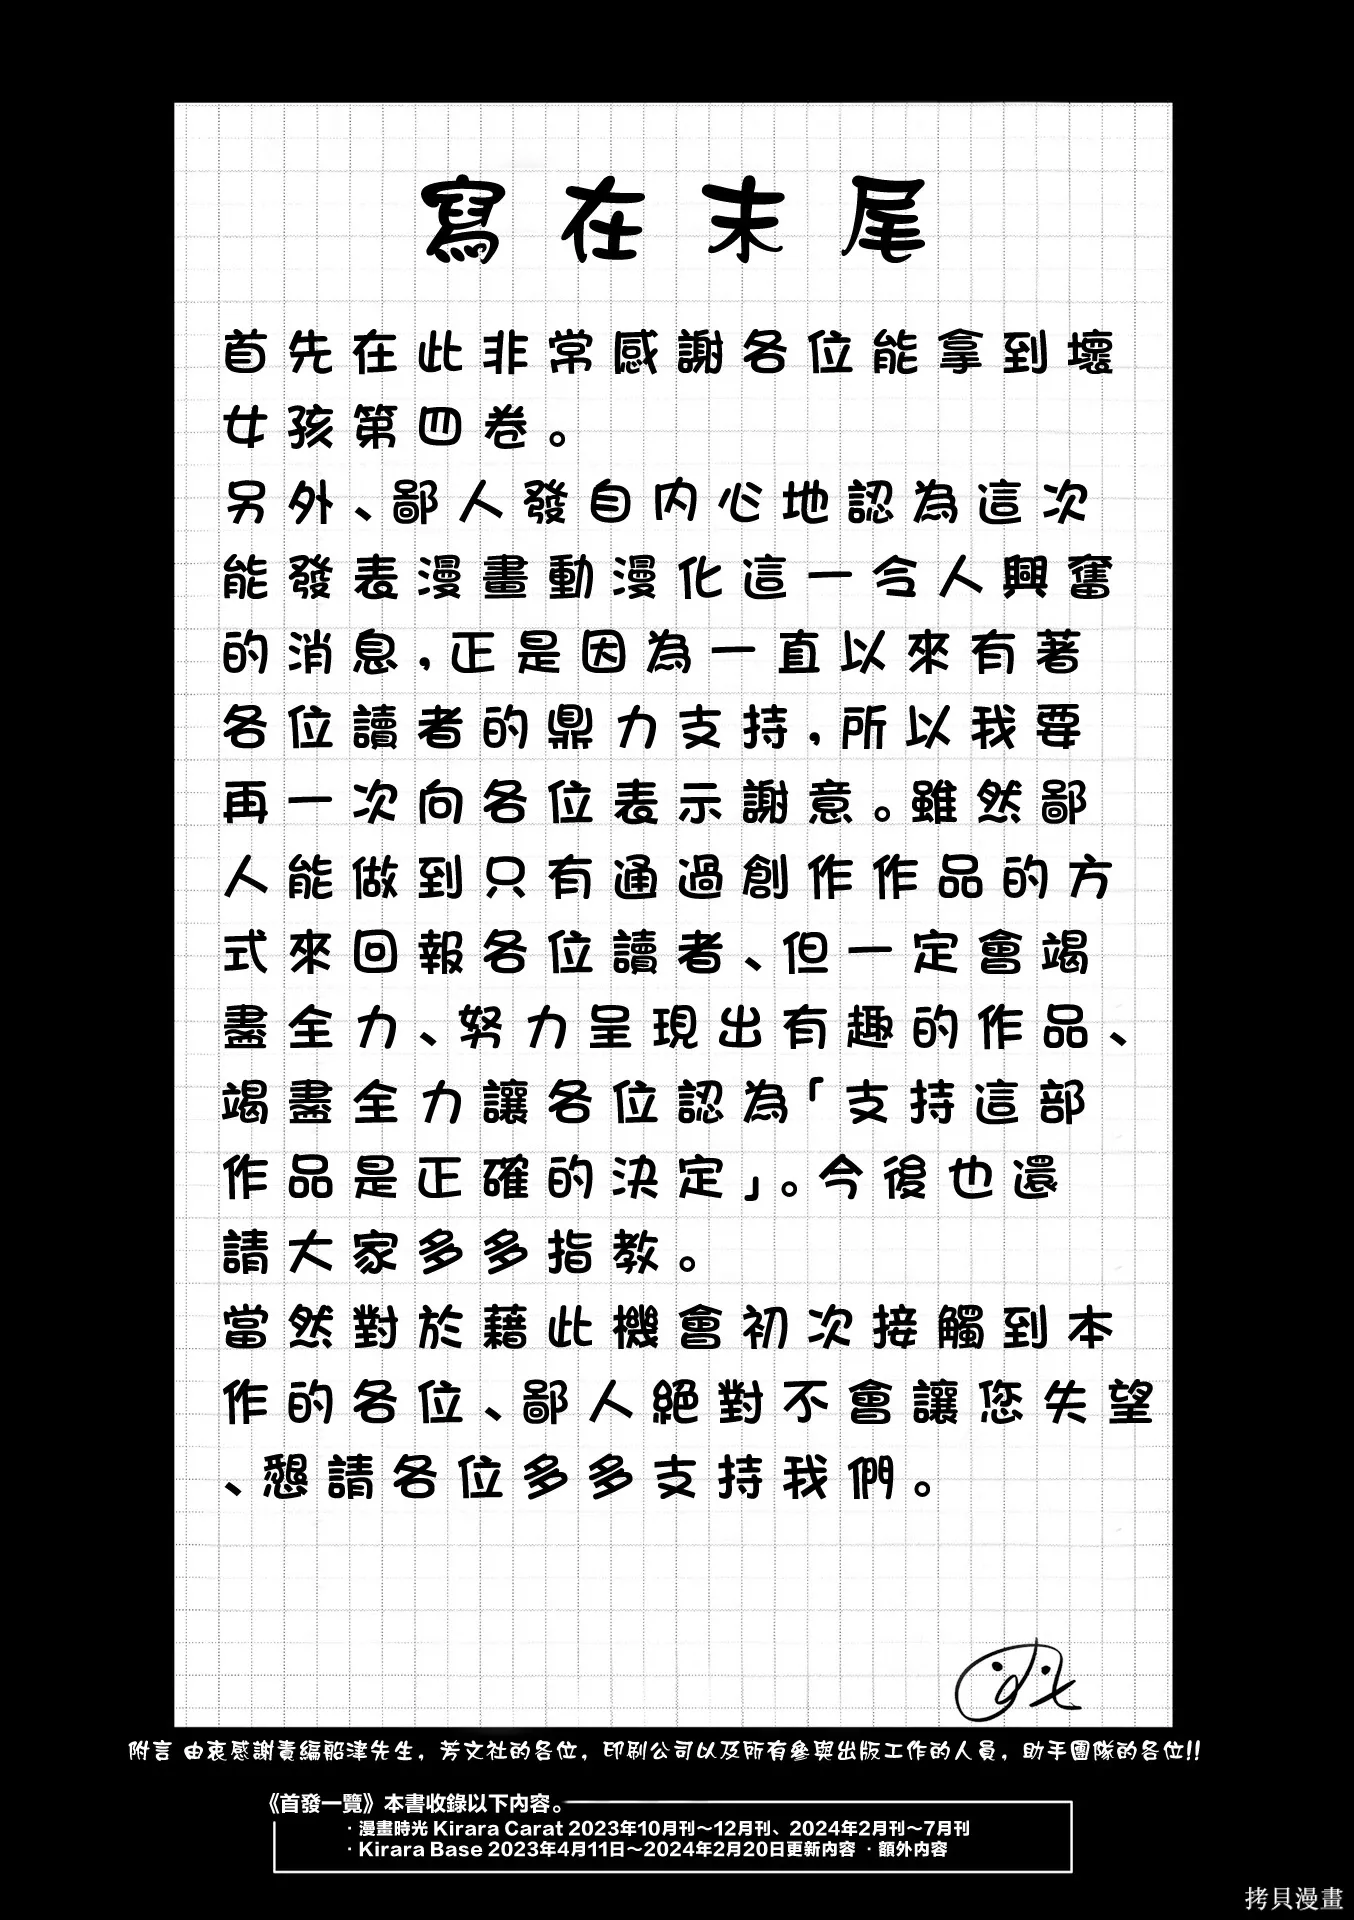 寫在末尾
首先在此非常感謝各位能拿到壞
女孩第四卷。
另外、鄙人發自內心地認為這次
能發表漫畫動漫化這一令人興奮
的消息,正是因為一直以來有著
各位讀者的鼎力支持,所以我要
再一次向各位表示謝意。雖然鄙
人能做到只有通過創作作品的方
式來回報各位讀者、但一定會竭
盡全力、努力呈現出有趣的作品、
竭盡全力讓各位認為「支持這部
作品是正確的決定」。今後也還
請大家多多指教。
當然對於藉此機會初次接觸到本
作的各位、鄙人絕對不會讓您失望
、懇請各位多多支持我們。
附言 由衷感謝責編船津先生，芳文社的各位，印刷公司以及所有參與出版工作的人員，助手團隊的各位!!
《首發一覽》本書收錄以下內容。
·漫畫時光 Kirara Carat 2023年10月刊～12月刊、2024年2月刊～7月刊
·Kirara Base 2023年4月11日～2024年2月20日更新內容 ·額外內容
拷貝漫畫